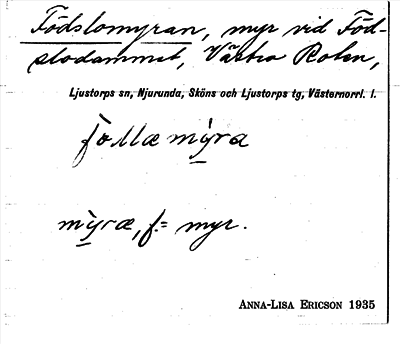 Födslomyran, myr vid Föd-
slodammet, Västra Roten,
Ljustorps sn, Njurunda, Sköns och Ljustorps tg, Västernorrl. l.
mỳra, f = myr.
ANNA-LISA ERICSON 1935